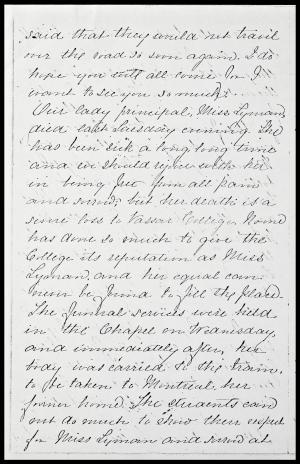 said that they would not travel
over the road so soon again. I do
hope you will all come for I
want to see you so much.
Our lady principal, Miss Lyman,
died last Tuesday evening. She
has been sick a long long time
and we should rejoice with her
in being free from all pain
and sorrow; but her death is a
severe loss to Vassar College. None
has done so much to give the
College its reputation as Miss
Lyman, and her equal can
never be found to fill the place.
The funeral services were held
in the Chapel on Wednesday,
and immediately after, her
body was carried to the train,
to be taken to Montreal, her
former home. The students can
not do much to show their respect
for Miss Lyman and sorrow at